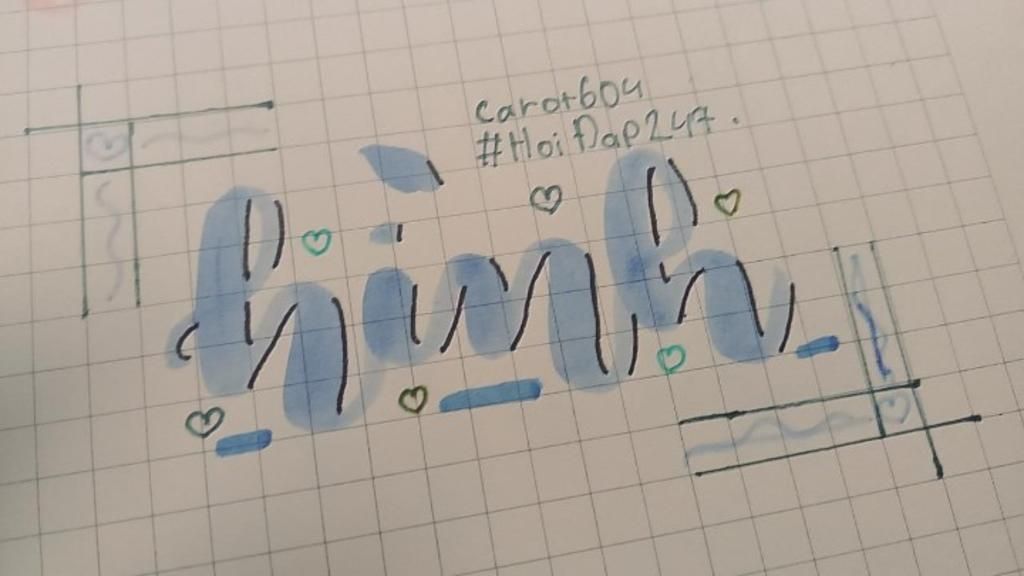 carot604
#HoiDap247.
hình